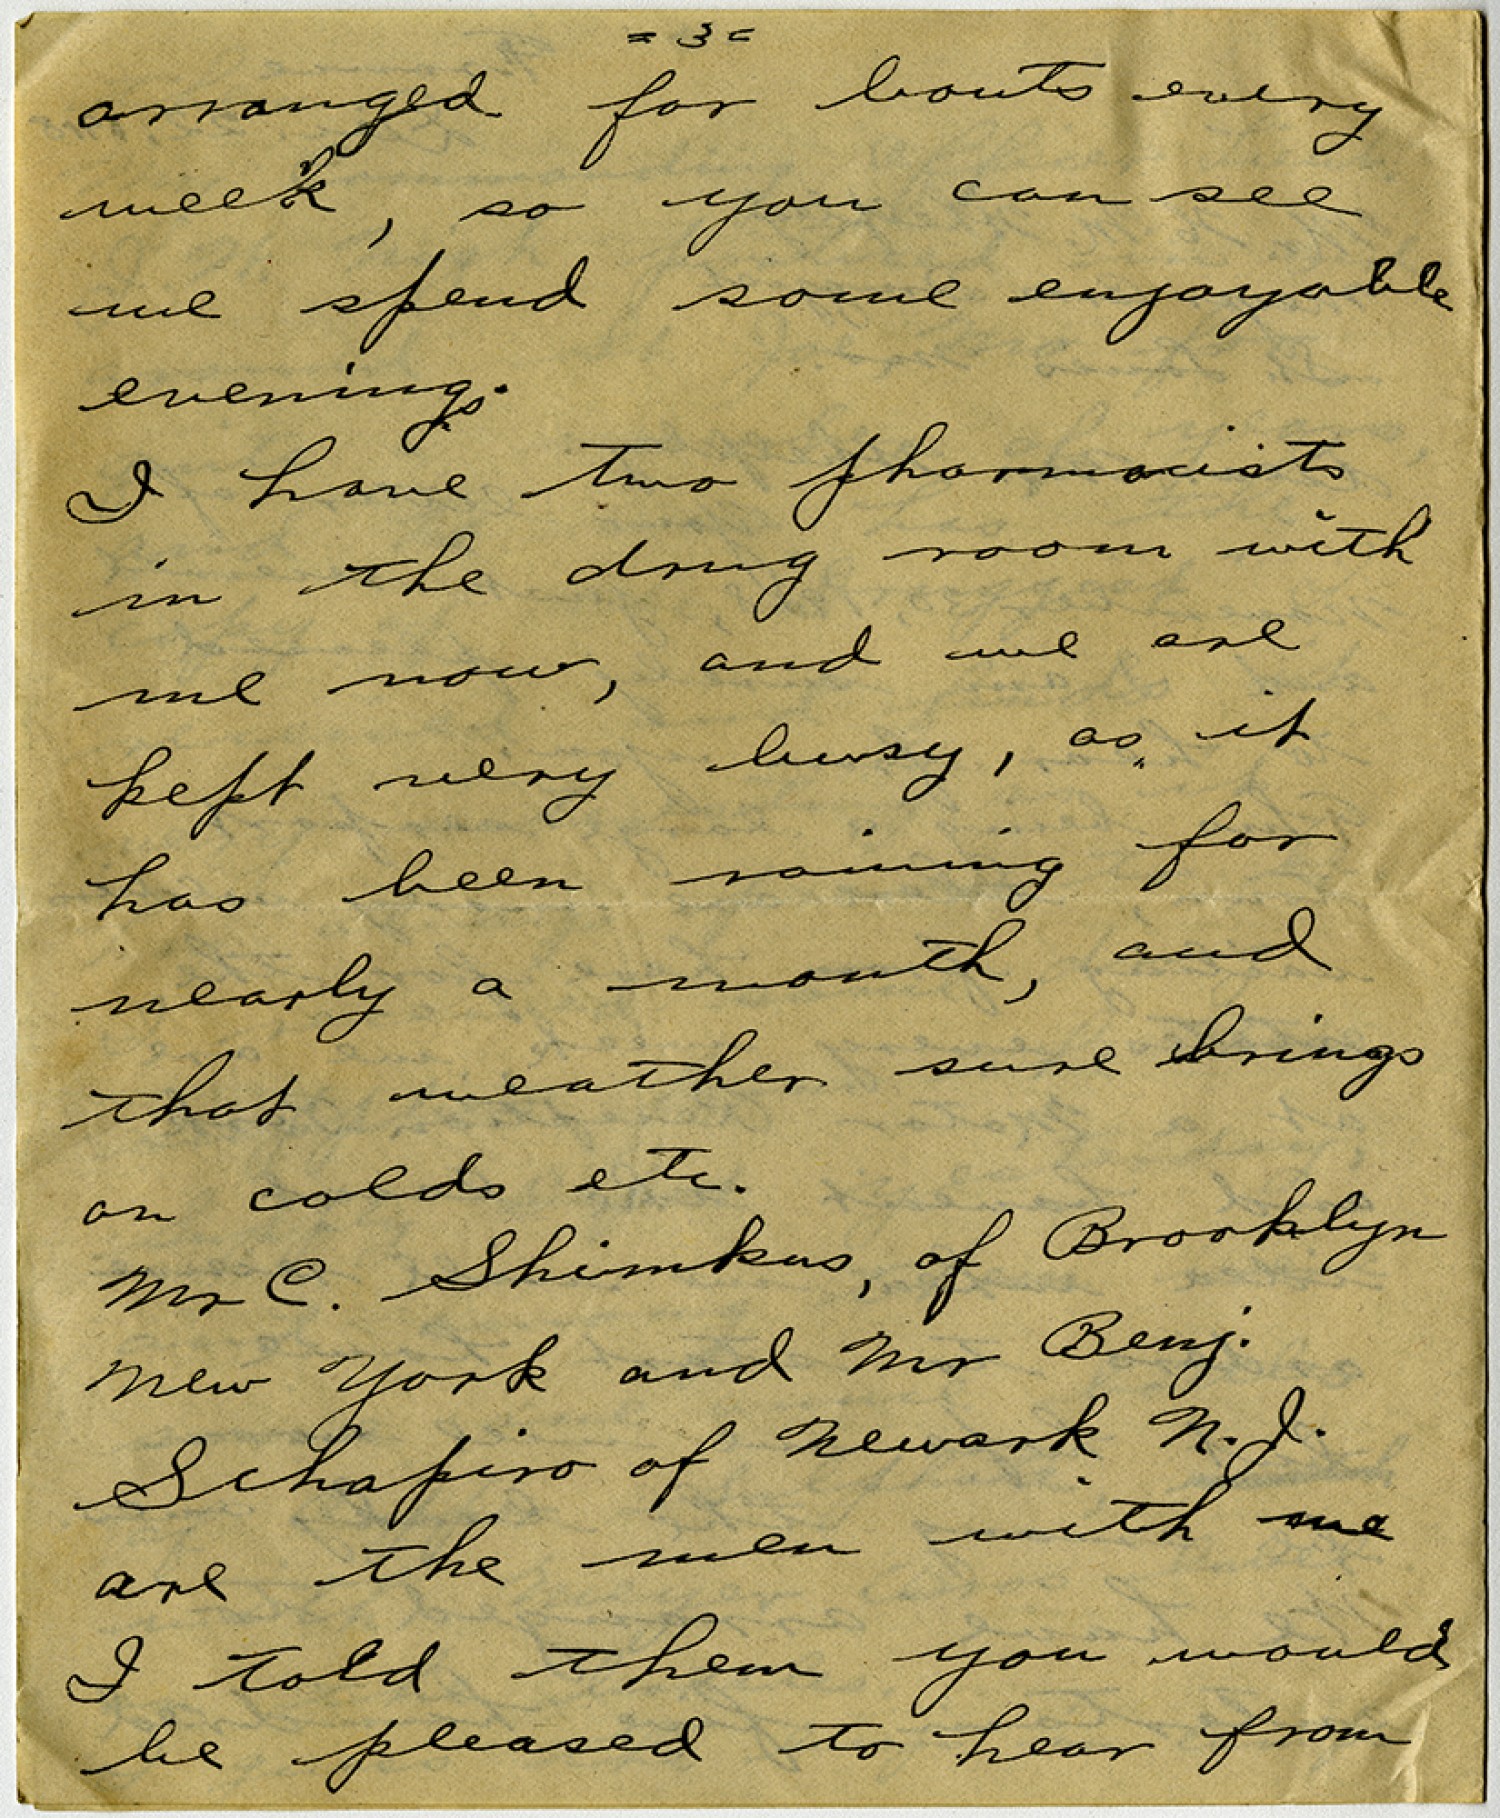 = 3 =
arranged for bouts every
week, so you can see
we spend some enjoyable
evenings.
I have two pharmacists
in the drug room with
me now, and we are
kept very busy, as it
has been raining for
nearly a month, and
that weather sure brings
on colds etc.
Mr C. Shimkus, of Brooklyn
New York and Mr Benj.
Schapiro of Newark N. J.
are the men with me
I told them you would
be pleased to hear from